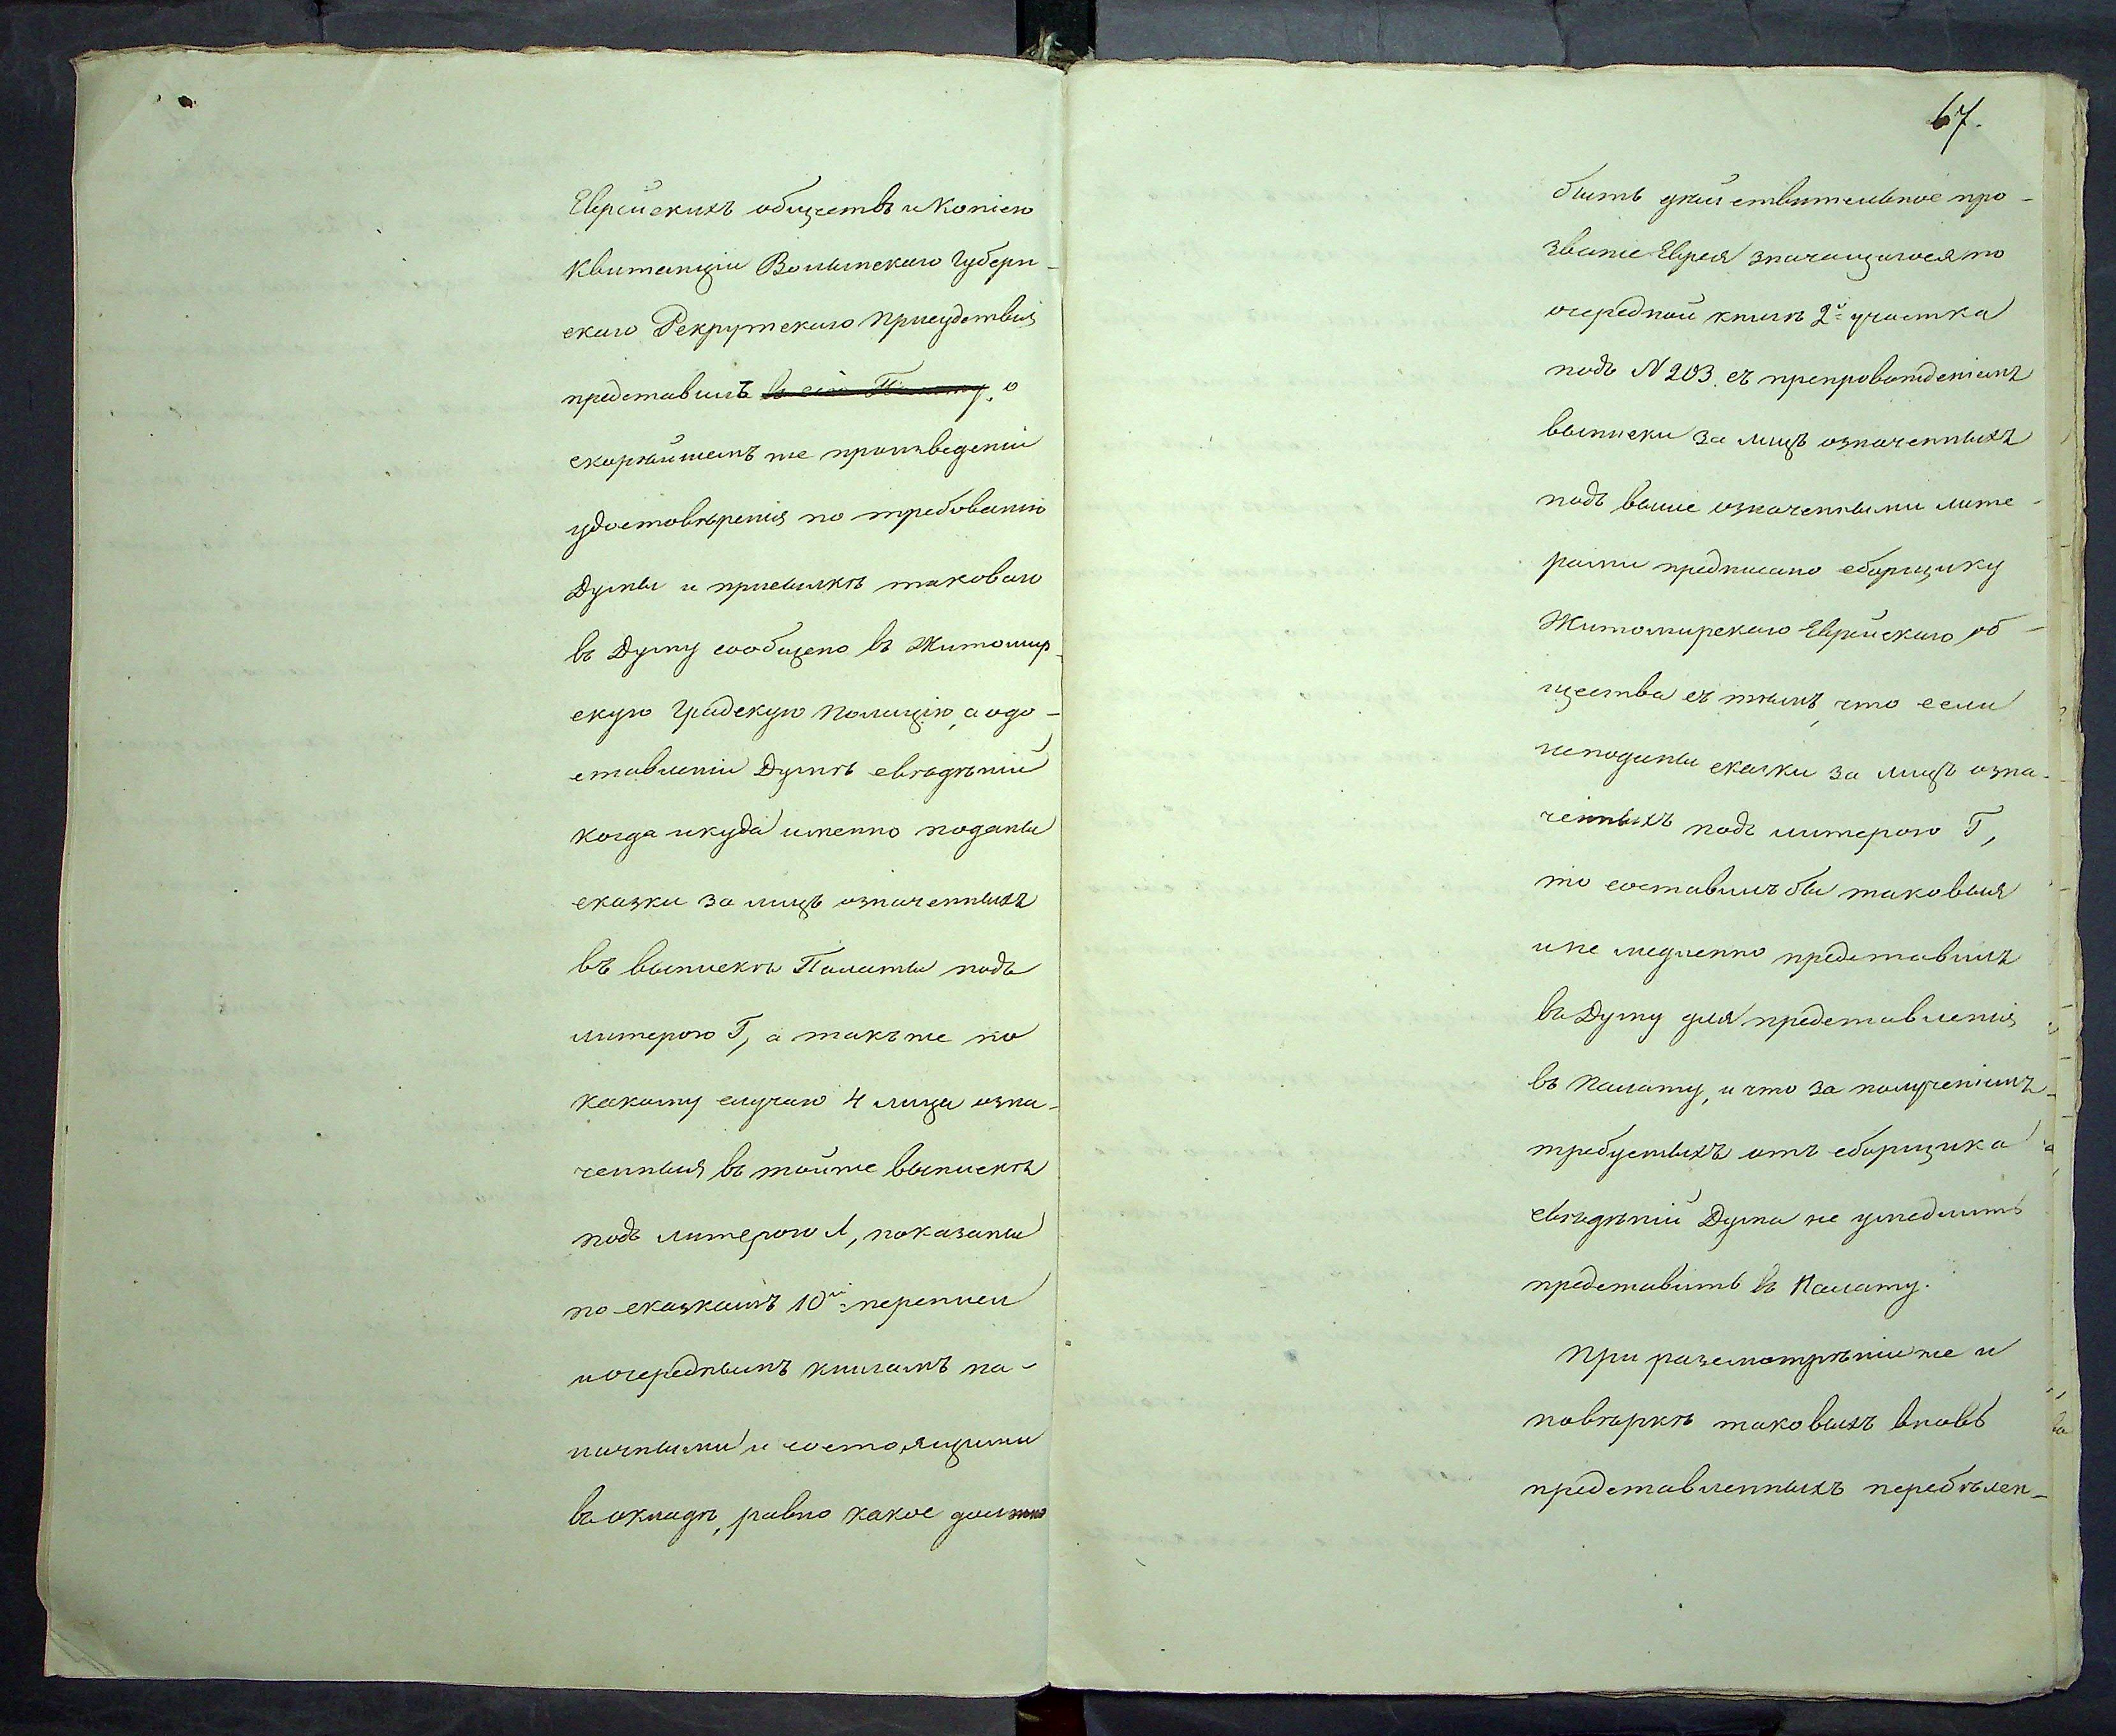 Еврейскихъ обществъ и Копiею
Квитанцiи Волынскаго Губерн-
скаго Рекрутскаго Присудствiя
представилъ въ сiю Палату, о
скорѣйшемъ же произведенiи
удостовѣренiя по требованiю
Думы и присылкѣ таковаго
въ Думу сообщено въ Житомир-
скую Градскую Полицiю, а о до-
ставленiи Думѣ свѣдѣнiй
когда и куда именно поданы
сказки за лицъ означенныхъ
въ выпискѣ Палаты подъ
литерою Г, а такъже по
какому случаю 4 лица озна-
ченныя въ тойже выпискѣ
подъ литерою Л, показаны
по сказкамъ 10й переписи
и очереднымъ книгамъ на-
личными и состоящими
въ окладѣ, равно какое должно
67.
быть дѣйствительное про-
званiе Еврея значащагося по
очередной книгѣ 2го участка
подъ N 203. съ препровожденiемъ
выписки за лицъ означенныхъ
подъ выше означенными лите-
рами предписано сборщику
Житомирскаго Еврейскаго об-
щества съ тѣмъ, что если
неподаны сказки за лицъ озна-
ченныхъ подъ литерою Г,
то составилъ бы таковыя
и не медленно представилъ
въ Думу для представленiя
въ Палату, и что за полученiемъ
требуемыхъ отъ сборщика
свѣдѣнiй Дума не умедлитъ
представить въ Палату.
При разсмотрѣнiи же и
повѣркѣ таковыхъ вновь
представленныхъ перебѣлен-